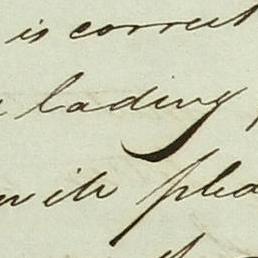 is correct
lading
with plea